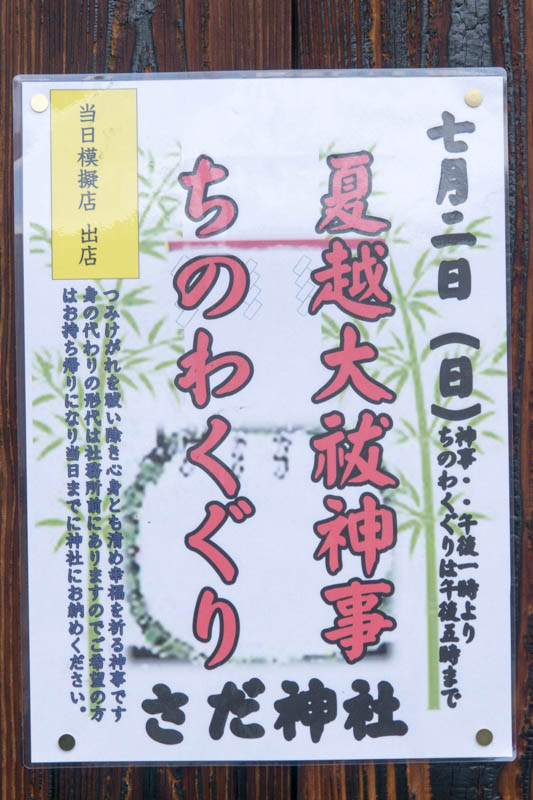 七月二日(日)
神事‥午後一時より
ちのわくぐりは午後五時まで
夏越大祓神事
ちのわくぐり
さだ神社
当日模擬店 出店
つみけがれを祓い除き心身とも清め幸福を祈る神事です
身の代わりの形代は社務所前にありますのでご希望の方
はお持ち帰りになり当日までに神社にお納めください。